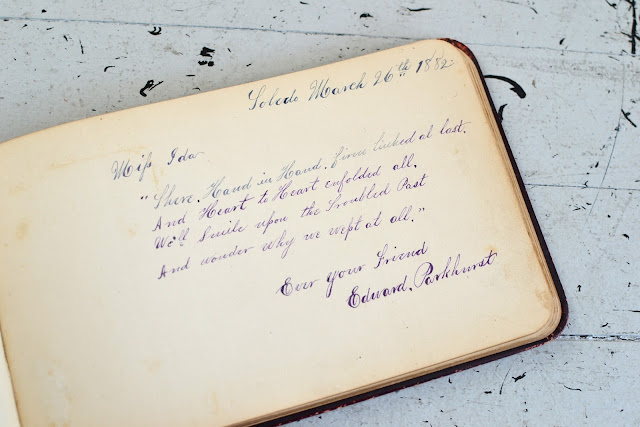 Toledo March 26th 1882
Miss Ida
"There, Hand in Hand, firm linked at last,
And Heart to Heart enfolded all,
We'll Smile upon the Troubled Past
And wonder why we wept at all."
Ever your Friend
Edward, Parkhurst